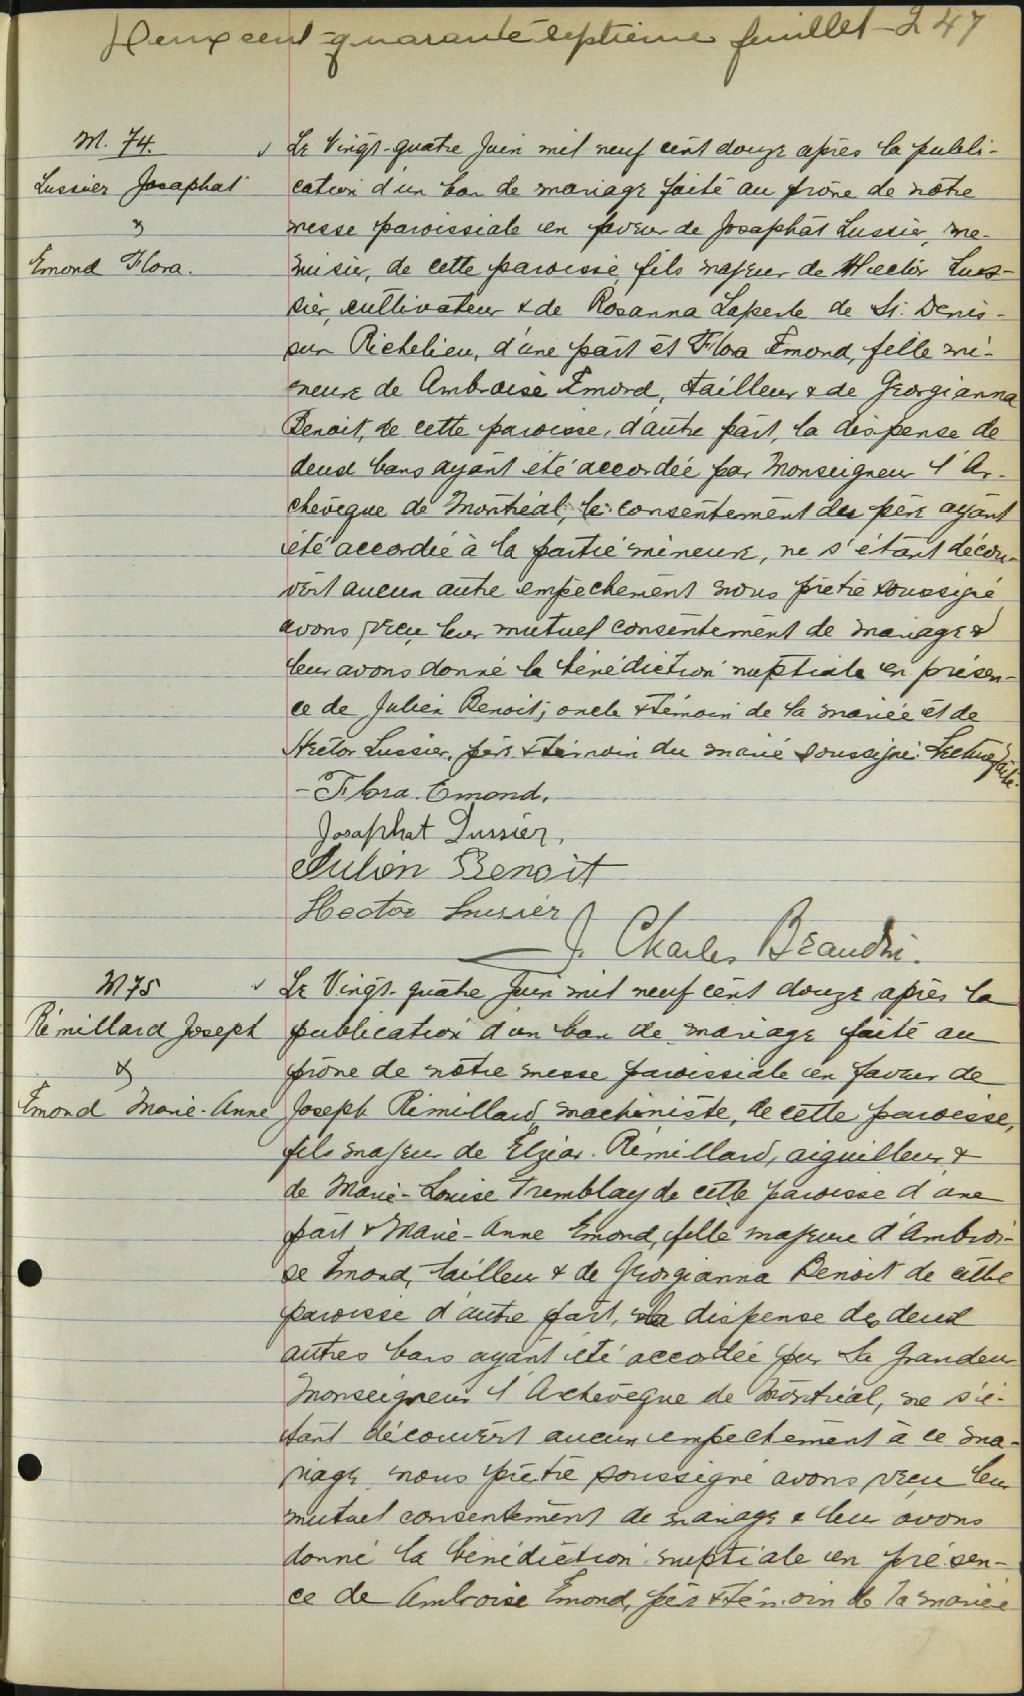 Deux cent quarante-septième feuillet - 247
M. 74.
Lussier Josaphat
&
Emond Flora.
Le Vingt-quatre Juin mil neuf cent douze après la publi-
cation d'un ban de mariage faite au prône de notre
messe paroissiale en faveur de Josaphat Lussier, me-
nuisier, de cette paroisse, fils majeur de Hector Lus-
sier, cultivateur & de Rosanna Laperle de St. Denis-
sur Richelieu, d'une part et Flora Emond, fille mi-
neure de Ambroise Emond, tailleur & de Georgianna
Benoit, de cette paroisse, d'autre part, la dispense de
deux bans ayant été accordée par Monseigneur l'Ar-
chevêque de Montréal, le consentement du père ayant
été accordée à la partie mineure, ne s'étant décou-
vert aucun autre empêchement nous prêtre soussigné
avons reçu leur mutuel consentement de mariage &
leur avons donné la bénédiction nuptiale en présen-
ce de Julien Benoit, oncle & témoin de la mariée et de
Hector Lussier, père & témoin du marié soussigné. Lecture faite.
- Flora Emond.
Josaphat Lussier.
Julien Benoit
Hector Lussier
J. Charles Beaudin.
M 75
Rémillard Joseph
&
Emond Marie-Anne
Le Vingt-quatre Juin mil neuf cent douze après la
publication d'un ban de mariage faite au
prône de notre messe paroissiale en faveur de
Joseph Rémillard, machiniste, de cette paroisse,
fils majeur de Elzéar Rémillard, aiguilleur &
de Marie-Louise Tremblay de cette paroisse d'une
part & Marie-Anne Emond, fille majeure d'Ambroi-
se Emond, tailleur & de Georgianna Benoit de cette
paroisse d'autre part, la dispense des deux
autres bans ayant été accordée par Sa Grandeur
Monseigneur l'Archevêque de Montréal, ne s'é-
tant découvert aucun empêchement à ce ma-
riage, nous prêtre soussigné avons reçu leur
mutuel consentement de mariage & leur avons
donné la bénédiction nuptiale en présen-
ce de Ambroise Emond, père & témoin de la mariée